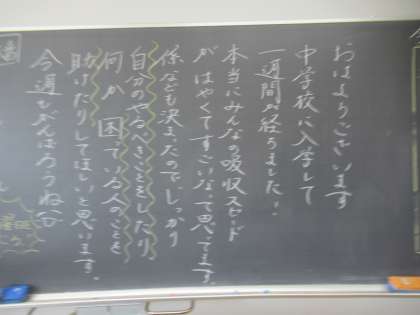 おはようございます
中学校に入学して
一週間が経ちました！
本当にみんなの吸収スピード
がはやくてすごいなって思ってます。
係なども決まったので、しっかり
自分のやるべきことをしたり
何か困っている人のことを
助けたりしてほしいと思います。
今週もがんばろうね